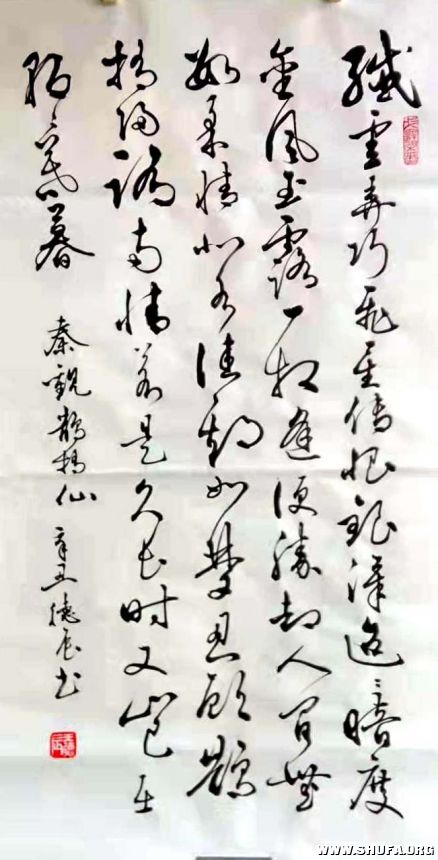 纖雲弄巧飛星傳恨銀漢迢迢暗度
金風玉露一相逢便勝却人間無
數柔情似水佳期如夢忍顧鵲
橋歸路兩情若是久長時又豈在
朝朝暮暮 秦觀鵲橋仙 辛丑德辰书
WWW.SHUFA.ORG